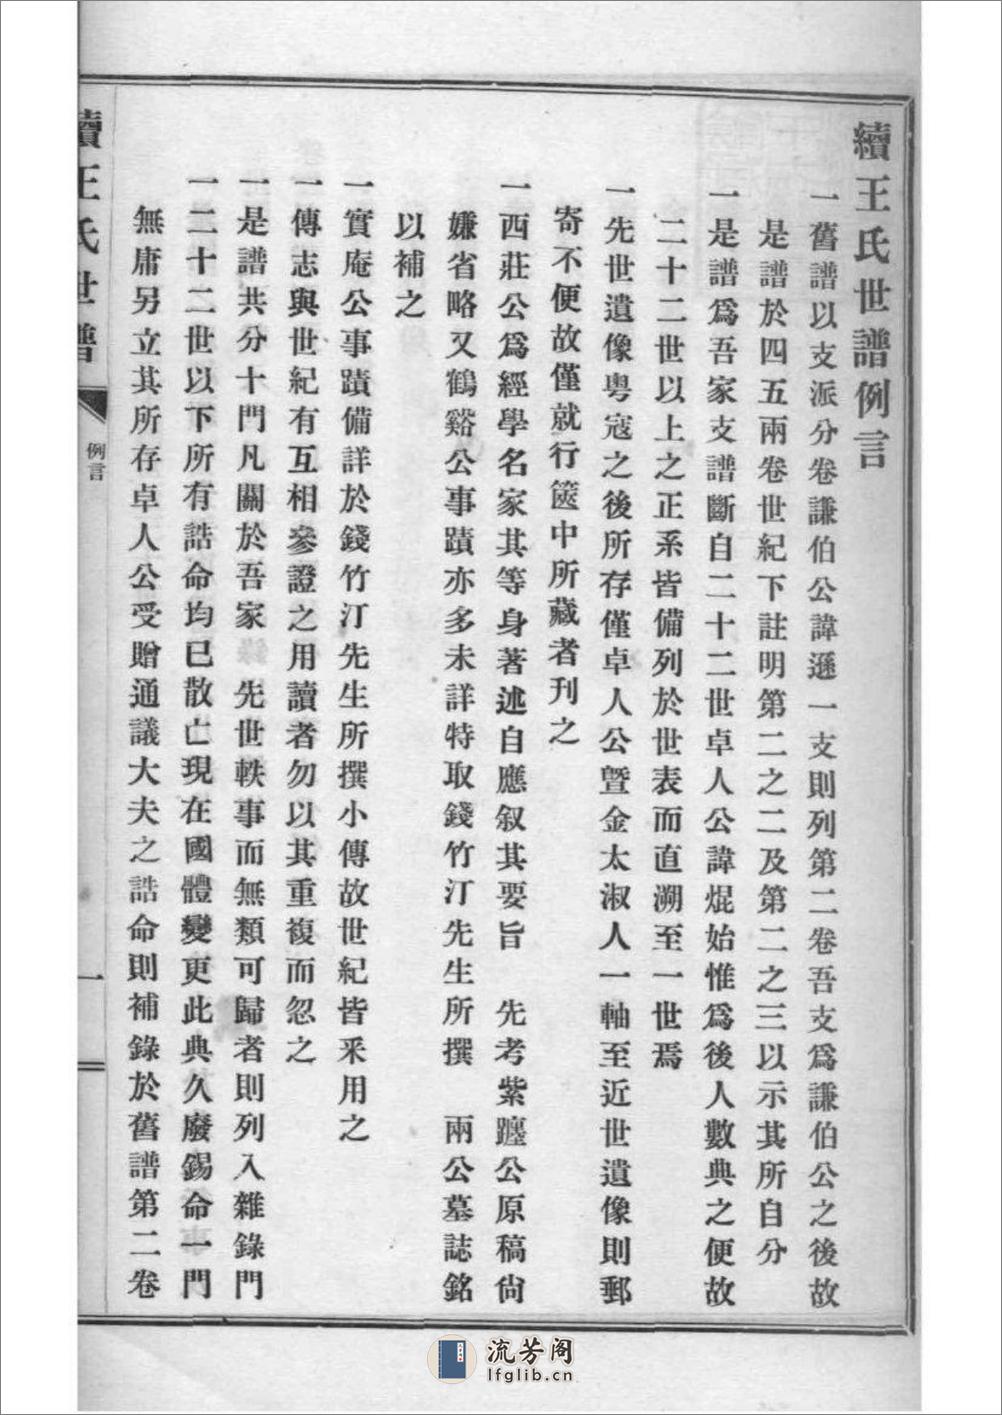 續王氏世譜例言
一舊譜以支派分卷謙伯公諱遜一支則列第二卷吾支爲謙伯公之後故
是譜於四五兩卷世紀下註明第二之二及第二之三以示其所自分
一是譜爲吾家支譜斷自二十二世卓人公諱焜始惟爲後人數典之便故
二十二世以上之正系皆備列於世表而直溯至一世焉
一先世遺像粤寇之後所存僅卓人公曁金太淑人一軸至近世遺像則郵
寄不便故僅就行篋中所藏者刊之
一西莊公爲經學名家其等身著述自應叙其要旨 先考紫躔公原稿尙
嫌省略又鶴谿公事蹟亦多未詳特取錢竹汀先生所撰 兩公墓誌銘
以補之
一實庵公事蹟備詳於錢竹汀先生所撰小傳故世紀皆釆用之
一傳志與世紀有互相參證之用讀者勿以其重複而忽之
一是譜共分十門凡關於吾家 先世軼事而無類可歸者則列入雜錄門
一二十二世以下所有誥命均已散亡現在國體變更此典久廢錫命一門
無庸另立其所存卓人公受贈通議大夫之誥命則補錄於舊譜第二卷
續王氏世譜
例言
一
流芳阁
lfglib.cn